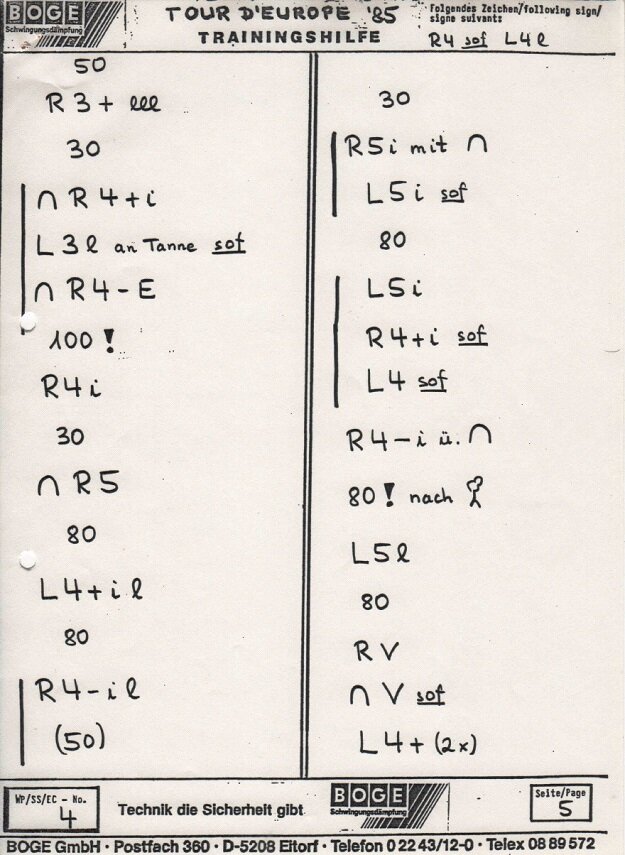 BOGE
Schwingungsdämpfung
TOUR D'EUROPE '85
TRAININGSHILFE
Folgendes Zeichen/following sign/
signe suivant:
R4 sof L4 l
50
R3+ lll
30
∩ R4+i
L3 l an Tanne sof
∩ R4-E
100!
R4i
30
∩ R5
80
L4+i l
80
R4-i l
(50)
30
R5i mit ∩
L5i sof
80
L5i
R4+i sof
L4 sof
R4-i ü. ∩
80! nach
L5 l
80
R V
∩ V sof
L4+ (2x)
WP/SS/EC - No.
4
Technik die Sicherheit gibt
BOGE
Schwingungsdämpfung
Seite/Page
5
BOGE GmbH · Postfach 360 · D-5208 Eitorf · Telefon 0 22 43/12-0 · Telex 08 89 572